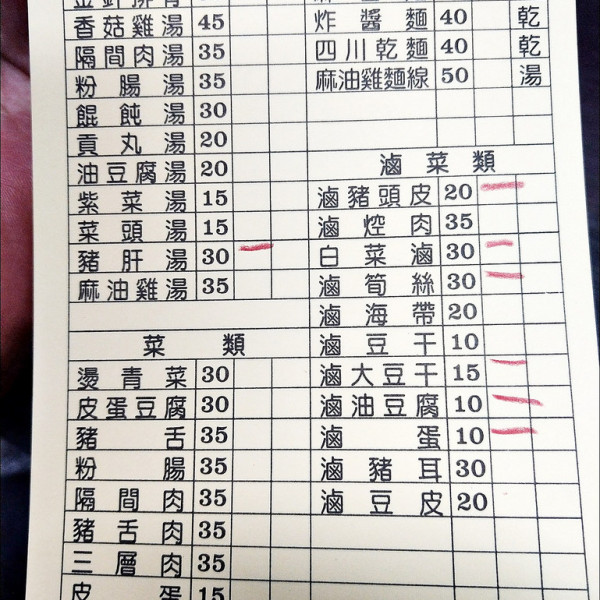 香菇雞湯 45
隔間肉湯 35
粉腸湯 35
餛飩湯 30
貢丸湯 20
油豆腐湯 20
紫菜湯 15
菜頭湯 15
豬肝湯 30
麻油雞湯 35
菜類
燙青菜 30
皮蛋豆腐 30
豬舌 35
粉腸 35
隔間肉 35
豬舌肉 35
三層肉 35
皮蛋 15
炸醬麵 40 乾
四川乾麵 40 乾
麻油雞麵線 50 湯
滷菜類
滷豬頭皮 20
滷焢肉 35
白菜滷 30
滷筍絲 30
滷海帶 20
滷豆干 10
滷大豆干 15
滷油豆腐 10
滷蛋 10
滷豬耳 30
滷豆皮 20